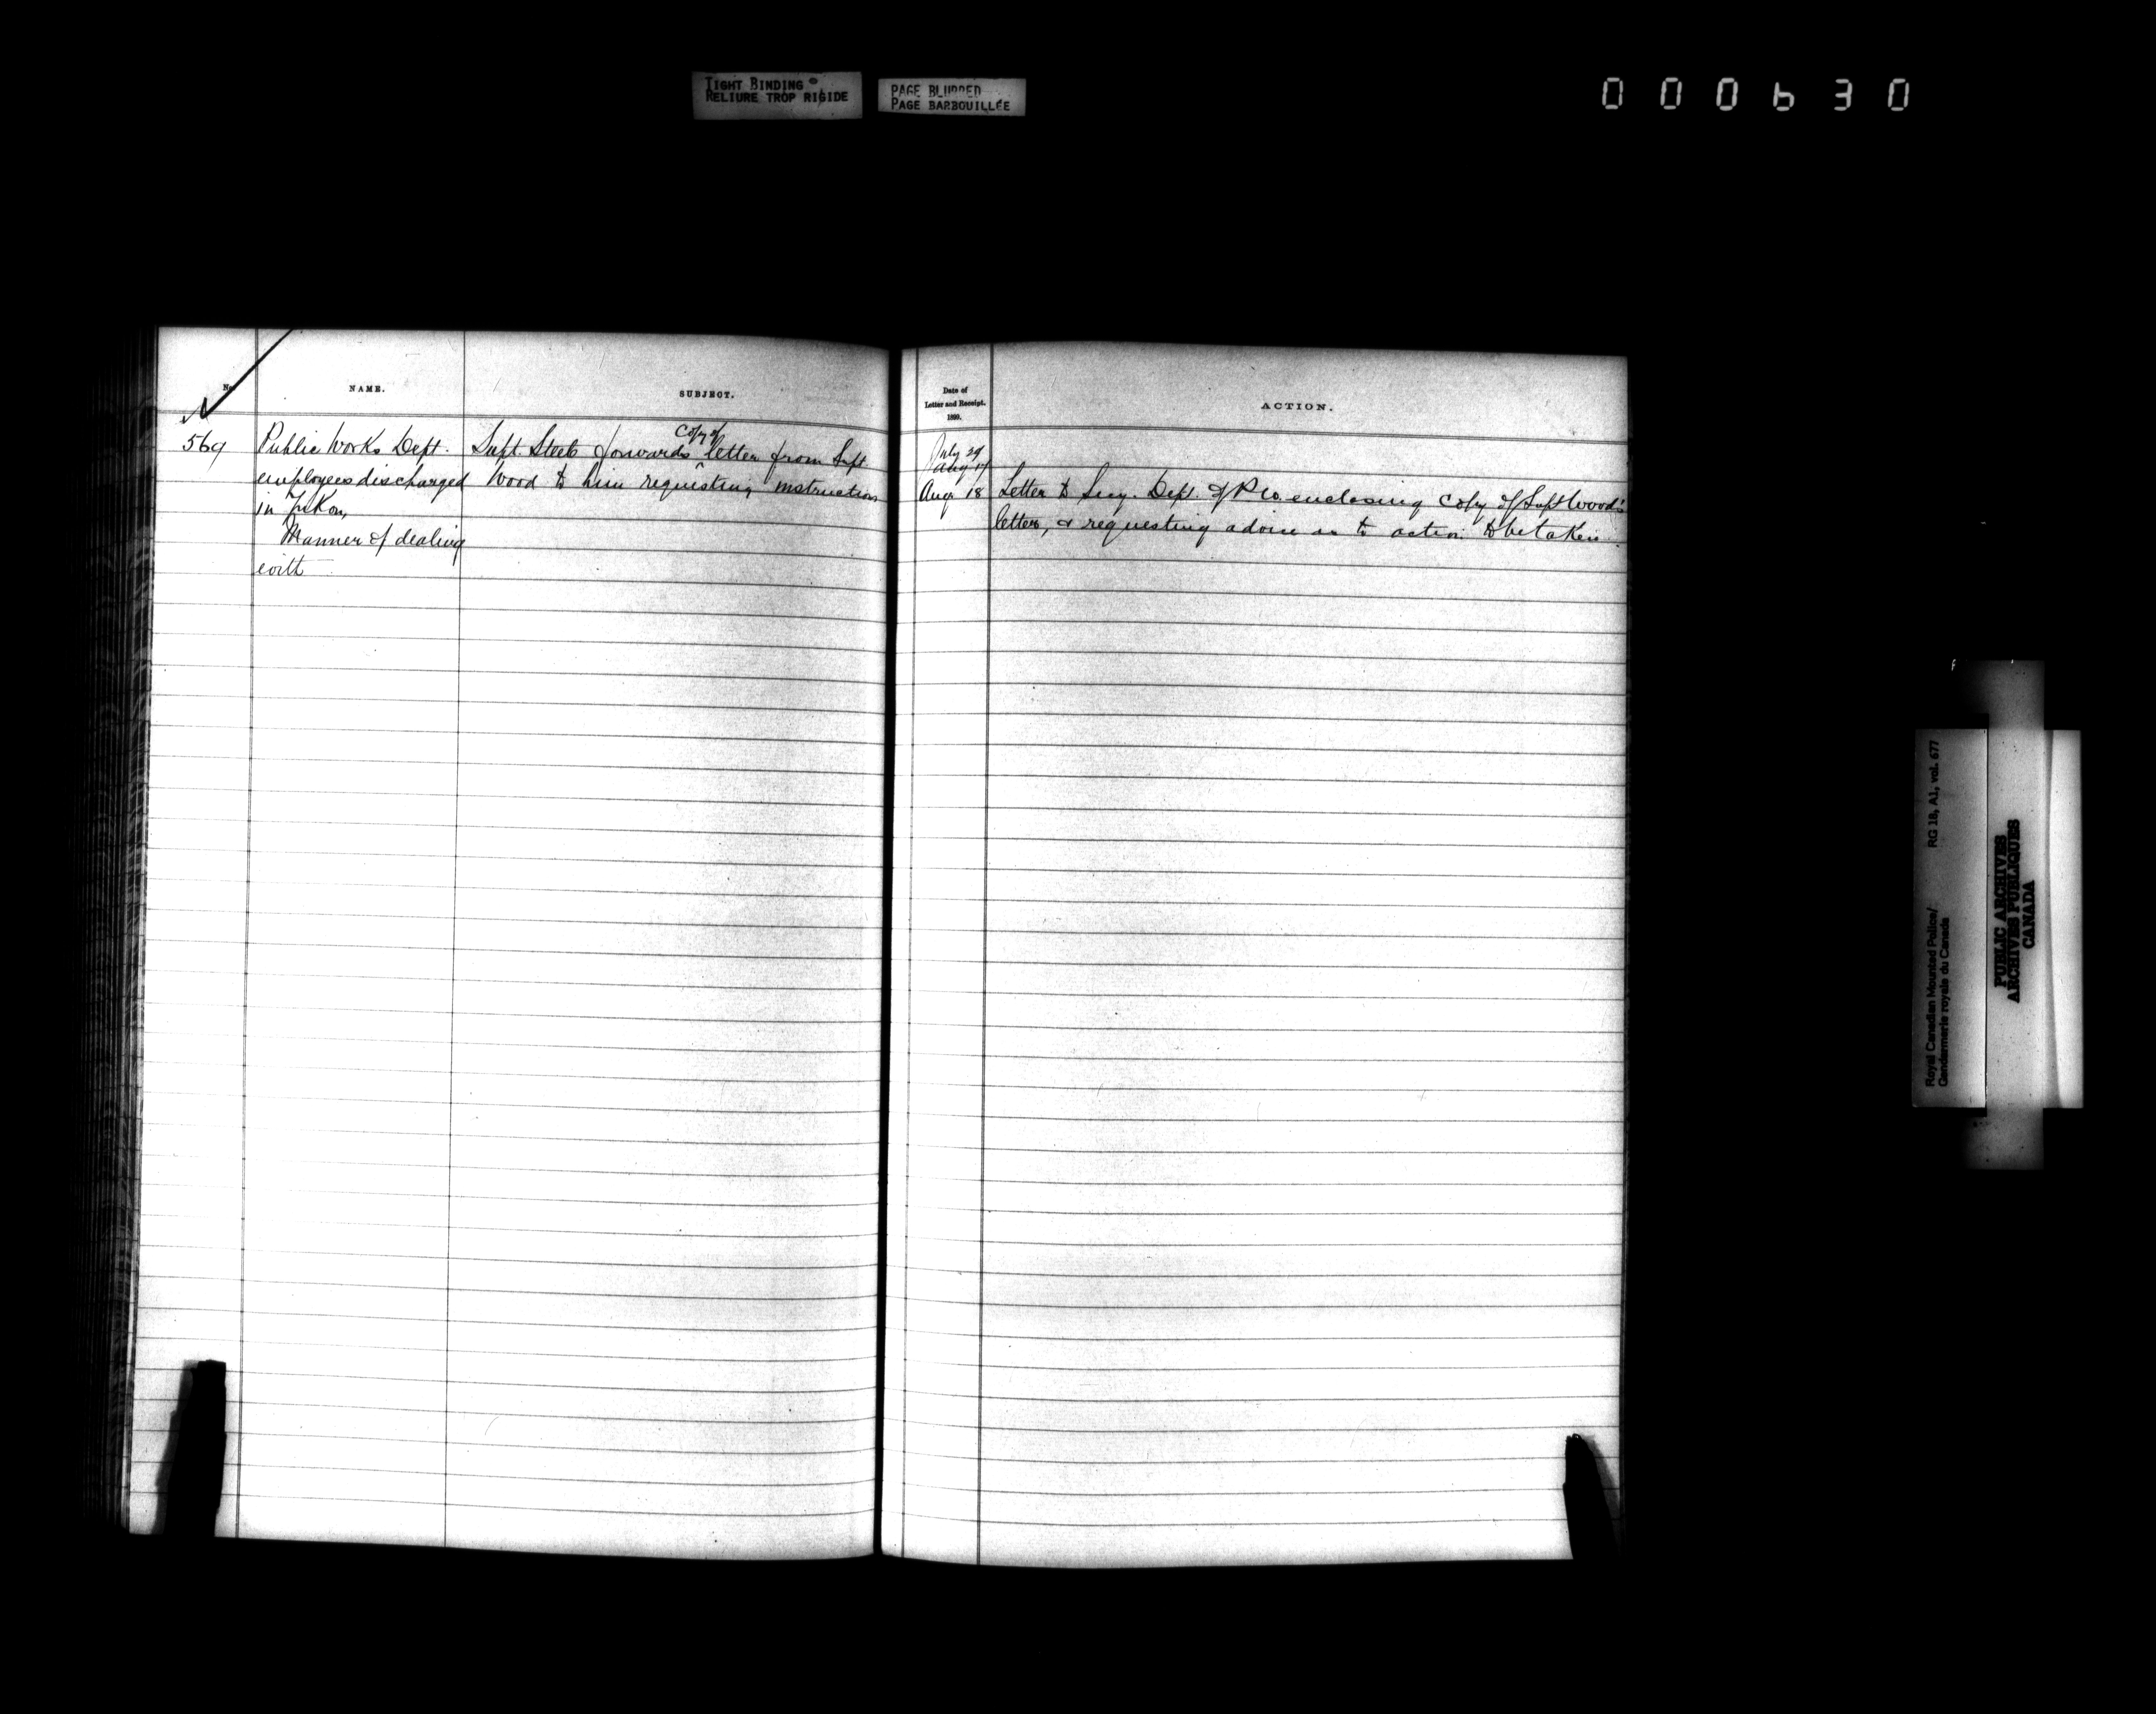 TIGHT BINDING
RELIURE TROP RIGIDE
PAGE BLURRED
PAGE BARBOUILLÉE
000630
No.
NAME.
SUBJECT.
569
Public Works Dept.
employees discharged
in Yukon,
Manner of dealing
with
Copy of
Supt. Steele forwards ^ letter from Supt.
Wood to him requesting instructions
Date of
Letter and Receipt.
1899.
ACTION.
July 29
Aug 17
Aug 18
Letter to Secy. Dept. of P W. enclosing copy of Supt Wood's
letter, & requesting advice as to action to be taken.
Royal Canadian Mounted Police/
Gendarmerie royale du Canada
RG 18, A1, vol. 677
PUBLIC ARCHIVES
ARCHIVES PUBLIQUES
CANADA